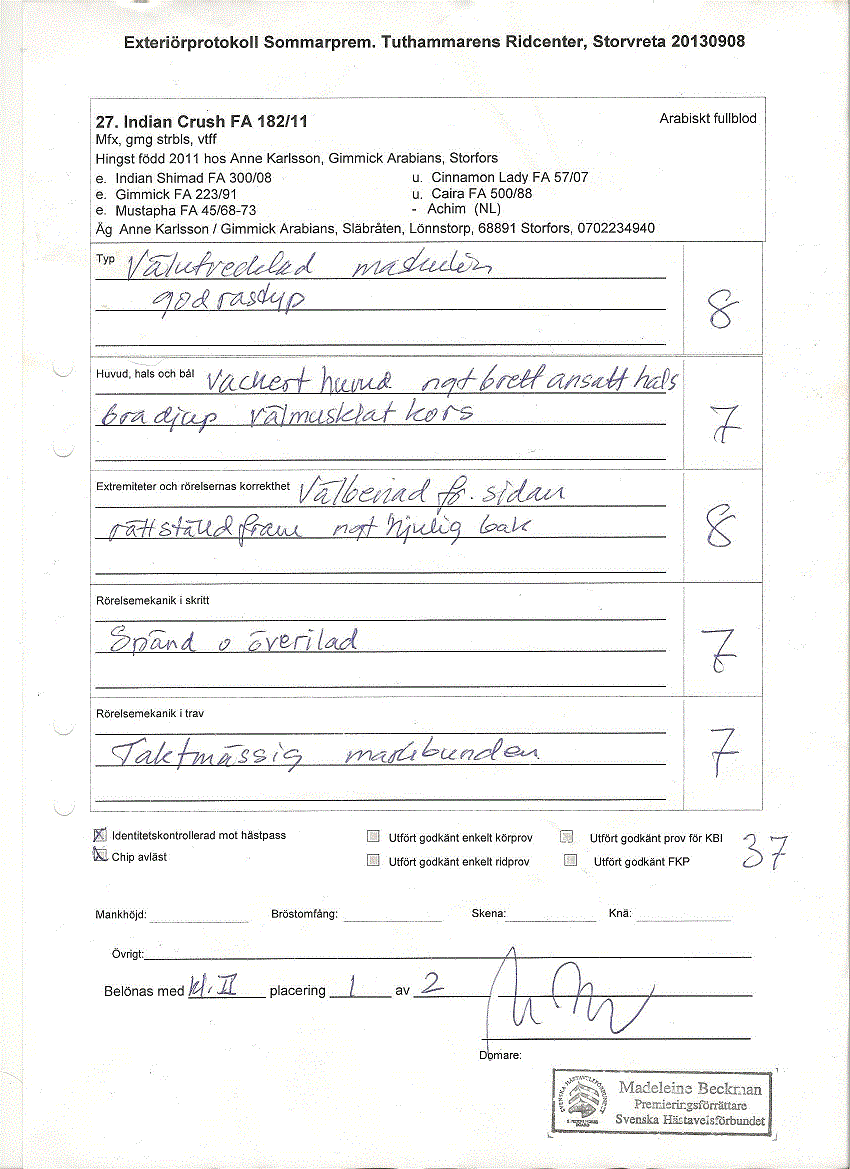 Exteriörprotokoll Sommarprem. Tuthammarens Ridcenter, Storvreta 20130908
27. Indian Crush FA 182/11 Arabiskt fullblod
Mfx, gmg strbls, vtff
Hingst född 2011 hos Anne Karlsson, Gimmick Arabians, Storfors
e. Indian Shimad FA 300/08 u. Cinnamon Lady FA 57/07
e. Gimmick FA 223/91 u. Caira FA 500/88
e. Mustapha FA 45/68-73 - Achim (NL)
Äg Anne Karlsson / Gimmick Arabians, Släbråten, Lönnstorp, 68891 Storfors, 0702234940
Typ Välutvecklad maskulin
god rastyp 8
Huvud, hals och bål Vackert huvud ngt brett ansatt hals
bra djup välmusklat kors 7
Extremiteter och rörelsernas korrekthet Välbenad fr. sidan
rättställd fram ngt hjulig bak 8
Rörelsemekanik i skritt
Spänd o överilad 7
Rörelsemekanik i trav
Taktmässig markbunden 7
Identitetskontrollerad mot hästpass Utfört godkänt enkelt körprov Utfört godkänt prov för KBI 37
Chip avläst Utfört godkänt enkelt ridprov Utfört godkänt FKP
Mankhöjd: Bröstomfång: Skena: Knä:
Övrigt:
Belönas med kl. II placering 1 av 2
Domare:
Madeleine Beckman
Premieringsförrättare
Svenska Hästavelsförbundet